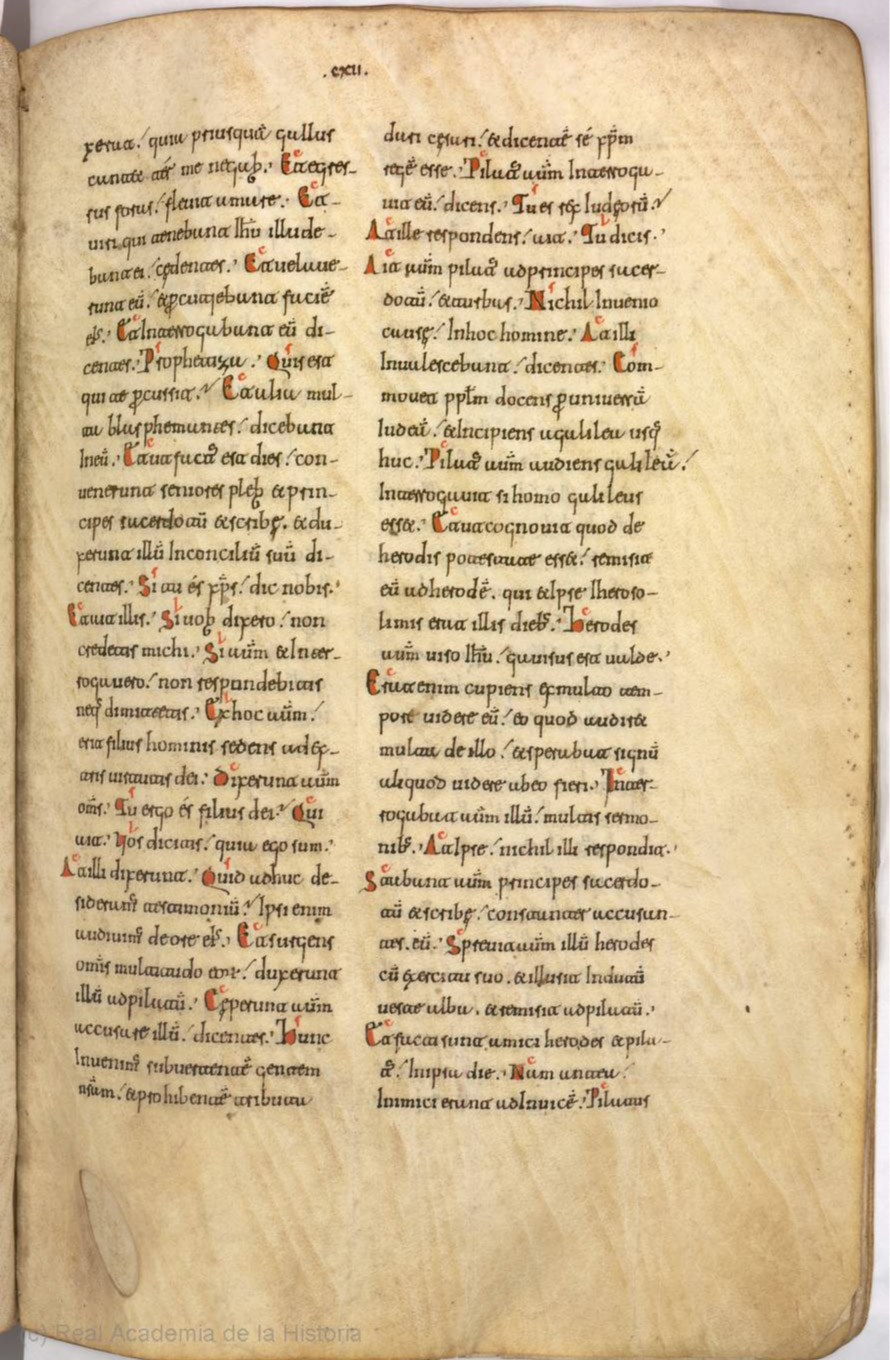 .cxii.
xerat. quia priusquā gallus
cantet ter me negabꝫ. Et egres-
sus foras. fleuit amare. Et
uiri qui tenebant ihm̄ illude-
bant ei. cędentes. Et uelaue-
runt eū. et ꝑcutiebant faciē
eis. Et Interrogabant eū di-
centes. Prophetiza. Quis est
qui te ꝑcussit. Et alia mul-
ta blasphemantes. dicebant
In eū. Et ut factū est dies. con-
uenerunt seniores plebꝫ et prin-
cipes sacerdotū et scribę. et du-
xerunt illū In conciliū suū di-
centes. Si tu es xp̄s. dic nobis.
Et ait illis. Si uobꝫ dixero. non
credetis michi. Si aūm et Inter-
rogauero. non respondebitis
neqꝫ dimittetis. Ex hoc aūm.
erit filius hominis sedens ad dex-
tris uirtutis dei. Dixerunt aūm
oms̄. Tu ergo es filius dei. Qui
ait. Vos dicitis. quia ego sum.
At illi dixerunt. Quid adhuc de-
sideramꝰ testimoniū. Ipsi enim
audiuimꝰ de ore eiꝰ. Et surgens
omīs multitudo eorꝫ. duxerunt
illū ad pilatū. Cęperunt aūm
accusare illū. dicentes. Hunc
Inuenimꝰ subuertentē gentem
nr̄am. et prohibentē tributa
dari cęsari. et dicentē se xp̄m
regē esse. Pilatꝰ aūm Interroga-
uit eū. dicens. Tu es rex Iudęorū.
At ille respondens. ait. Tu dicis.
Ait aūm pilatꝰ ad principes sacer-
dotū. et turbas. Nichil Inuenio
causę. In hoc homine. At illi
Inualescebant. dicentes. Com-
mouet pplm̄ docens ꝑ uniuersā
Iudeā. et Incipiens a galilea usqꝫ
huc. Pilatꝰ aūm audiens galileā.
Interrogauit si homo galileus
esset. Et ut cognouit quod de
herodis potestate esset. remisit
eū ad herodē. qui et Ipse Iheroso-
limis erat illis diebꝫ. Herodes
aūm uiso ihū. gauisus est ualde.
Erat enim cupiens ex multo tem-
pore uidere eū. eo quod audiret
multa de illo. et sperabat signū
aliquod uidere ab eo fieri. Inter-
rogabat aūm illū. multis sermo-
nibꝫ. At Ipse. nichil illi respondit.
Stabant aūm principes sacerdo-
tū et scribę. constanter accusan-
tes. eū. Spreuit aūm illū herodes
cū exercitu suo. et illusit Indutū
ueste alba. et remisit ad pilatū.
Et facti sunt amici herodes et pila-
tꝰ. In ipsa die. Nam antea.
Inimici erant ad Inuicē. Pilatus
(c) Real Academia de la Historia